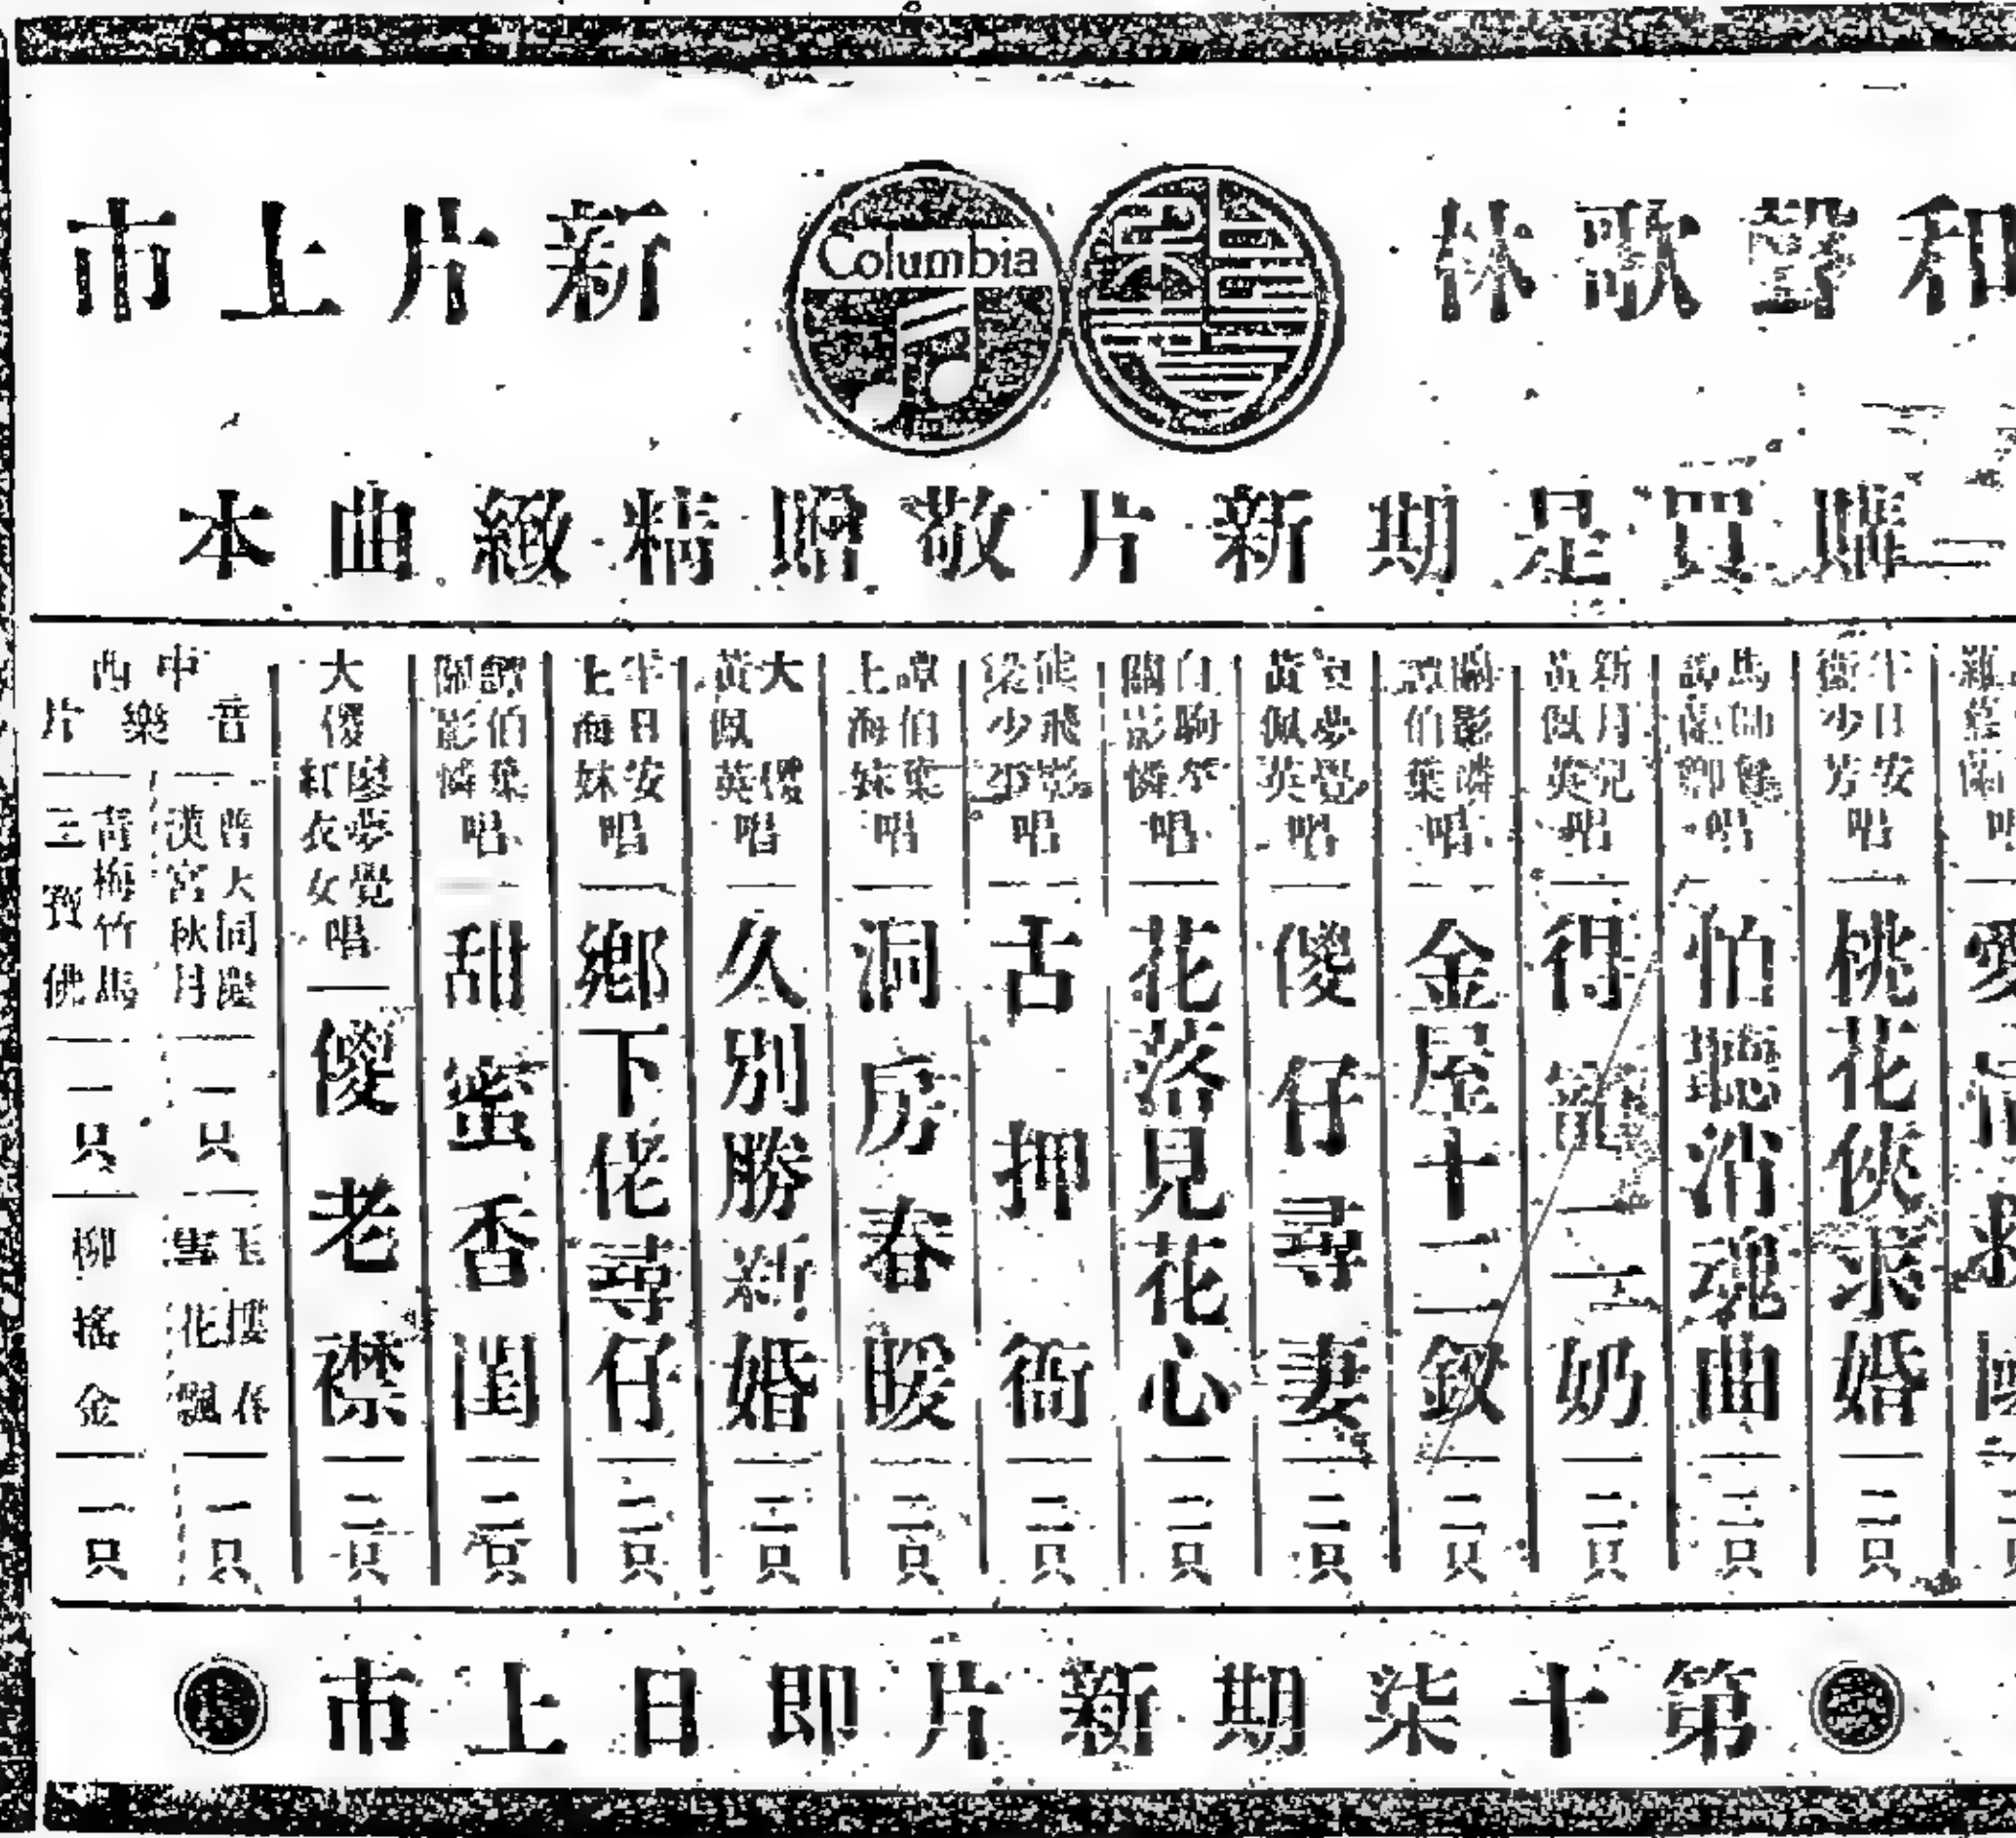 和聲歌林
Columbia
新片上市
購買是期新片敬贈精緻曲本
牛日安
衛少芳
唱
桃花俠求婚
二只
馬師曾
譚蘭卿
唱
怕聽消魂曲
二只
新月兒
黃佩英
唱
得寵二奶
二只
關影憐
譚伯葉
唱
金屋十二釵
二只
廖夢覺
黃佩英
唱
傻仔尋妻
二只
白駒榮
關影憐
唱
花落見花心
二只
熊飛影
梁少平
唱
古押衙
二只
譚伯葉
上海妹
唱
洞房春暖
二只
大傻
黃佩英
唱
久別勝新婚
二只
牛日安
上海妹
唱
鄉下佬尋仔
二只
譚伯葉
關影憐
唱
甜蜜香閨
二只
大傻
廖夢覺
紅衣女
唱
傻老襟
二只
中西
音樂片
普天同慶
漢宮秋月
一只
玉樓春
雪花飄
一只
青梅竹馬
三寶佛
一只
柳搖金
一只
第十柒期新片即日上市